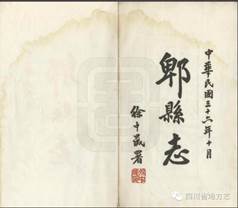 中華民國三十六年十月
郫縣志
徐中署
四川省地方志